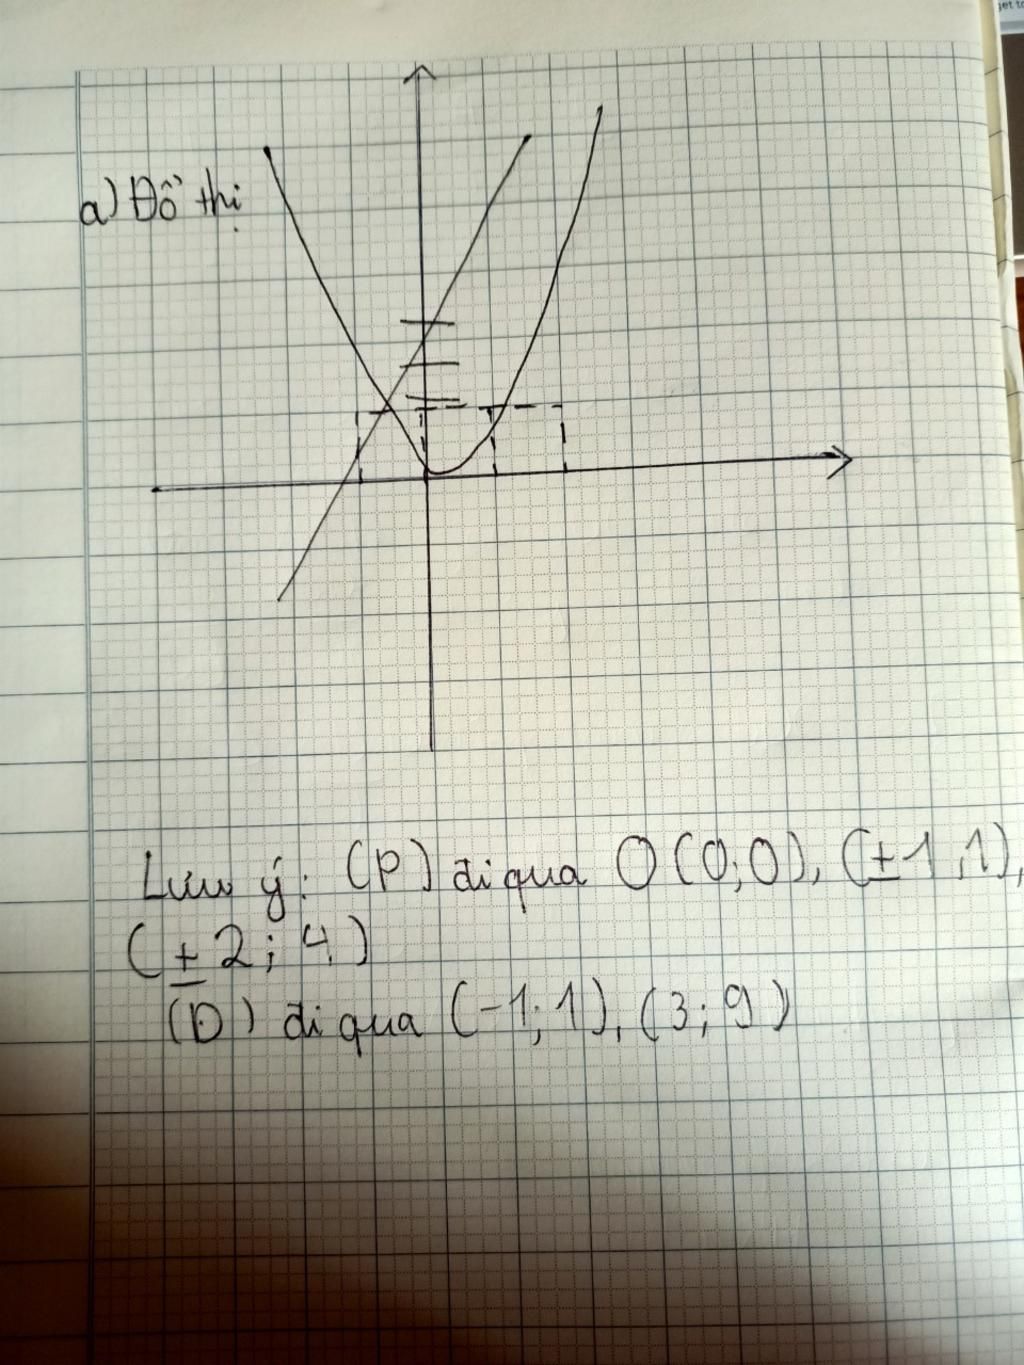 a) Đồ thị
Lưu ý: (P) đi qua O(0;0), (±1;1),
(±2; 4)
(D) đi qua (-1;1), (3;9)